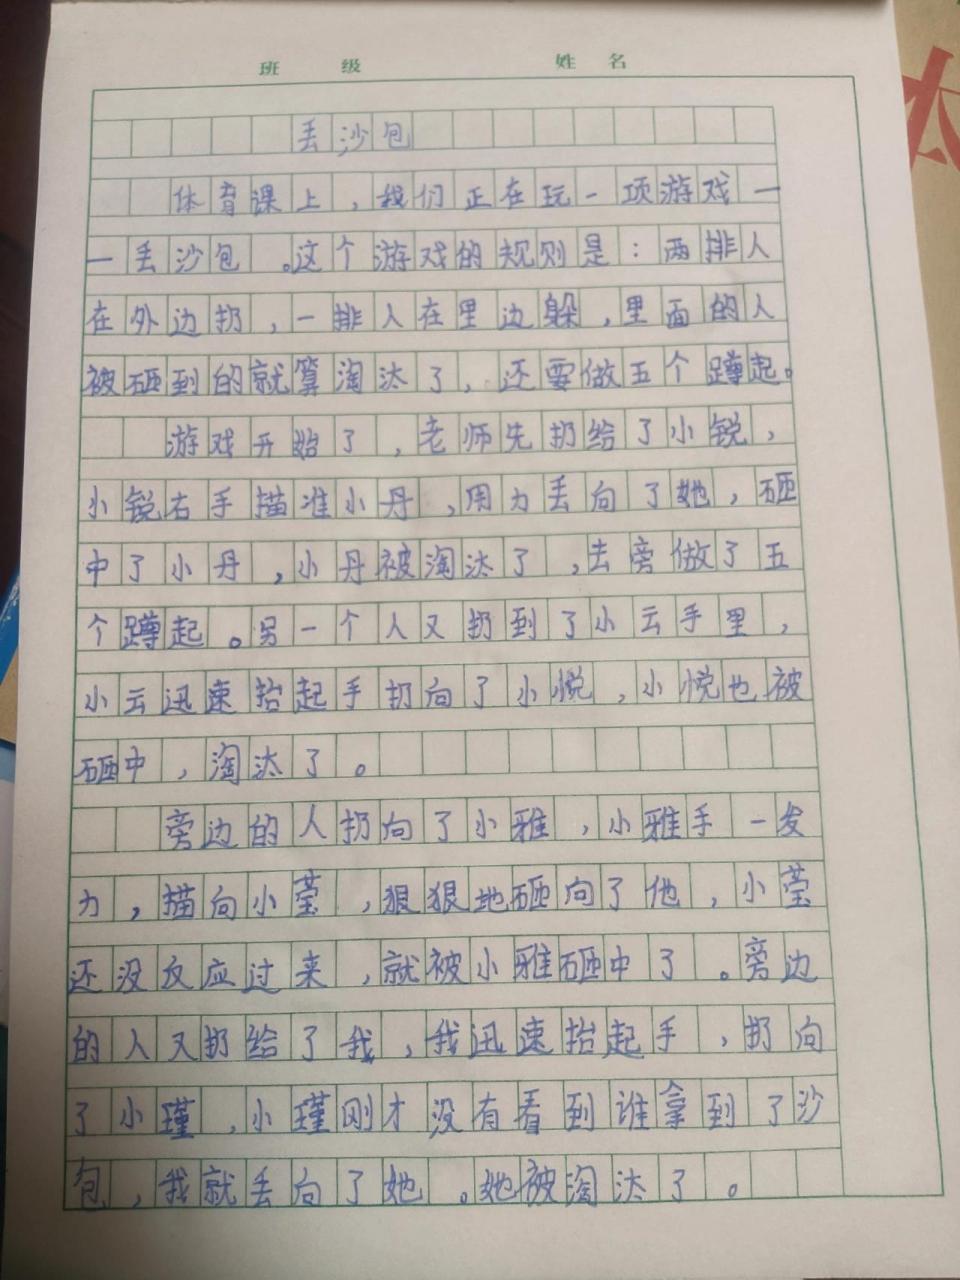 班 级 姓 名
丢沙包
体育课上，我们正在玩一项游戏一
一丢沙包。这个游戏的规则是：两排人
在外边扔，一排人在里边躲，里面的人
被砸到的就算淘汰了，还要做五个蹲起。
游戏开始了，老师先扔给了小锐，
小锐右手描准小丹，用力丢向了她，砸
中了小丹，小丹被淘汰了，去旁做了五
个蹲起。另一个人又扔到了小云手里，
小云迅速抬起手扔向了小悦，小悦也被
砸中，淘汰了。
旁边的人扔向了小雅，小雅手一发
力，描向小莹，狠狠地砸向了他，小莹
还没反应过来，就被小雅砸中了。旁边
的人又扔给了我，我迅速抬起手，扔向
了小瑾，小瑾刚才没有看到谁拿到了沙
包，我就丢向了她。她被淘汰了。